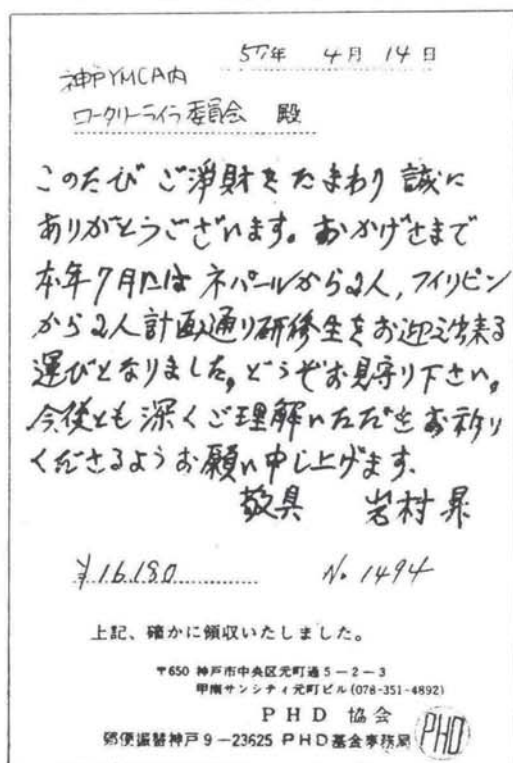 57年 4月 14日
神戸YMCA内
ワークリーライフ委員会 殿
このたび ご浄財を たまわり 誠に
ありがとうございます。おかげさまで
本年7月には ネパールから2人,フィリピン
から2人計画通り研修生をお迎え出来る
運びとなりました。どうぞお見守り下さい。
今後とも 深くご理解いただきお祈り
くださるようお願い申し上げます。
敬具 岩村昇
¥16,180 No. 1494
上記、確かに領収いたしました。
〒650 神戸市中央区元町通5-2-3
甲南サンシティ元町ビル(078-351-4892)
PHD 協会
郵便振替神戸9-23625 PHD基金事務局
PHD